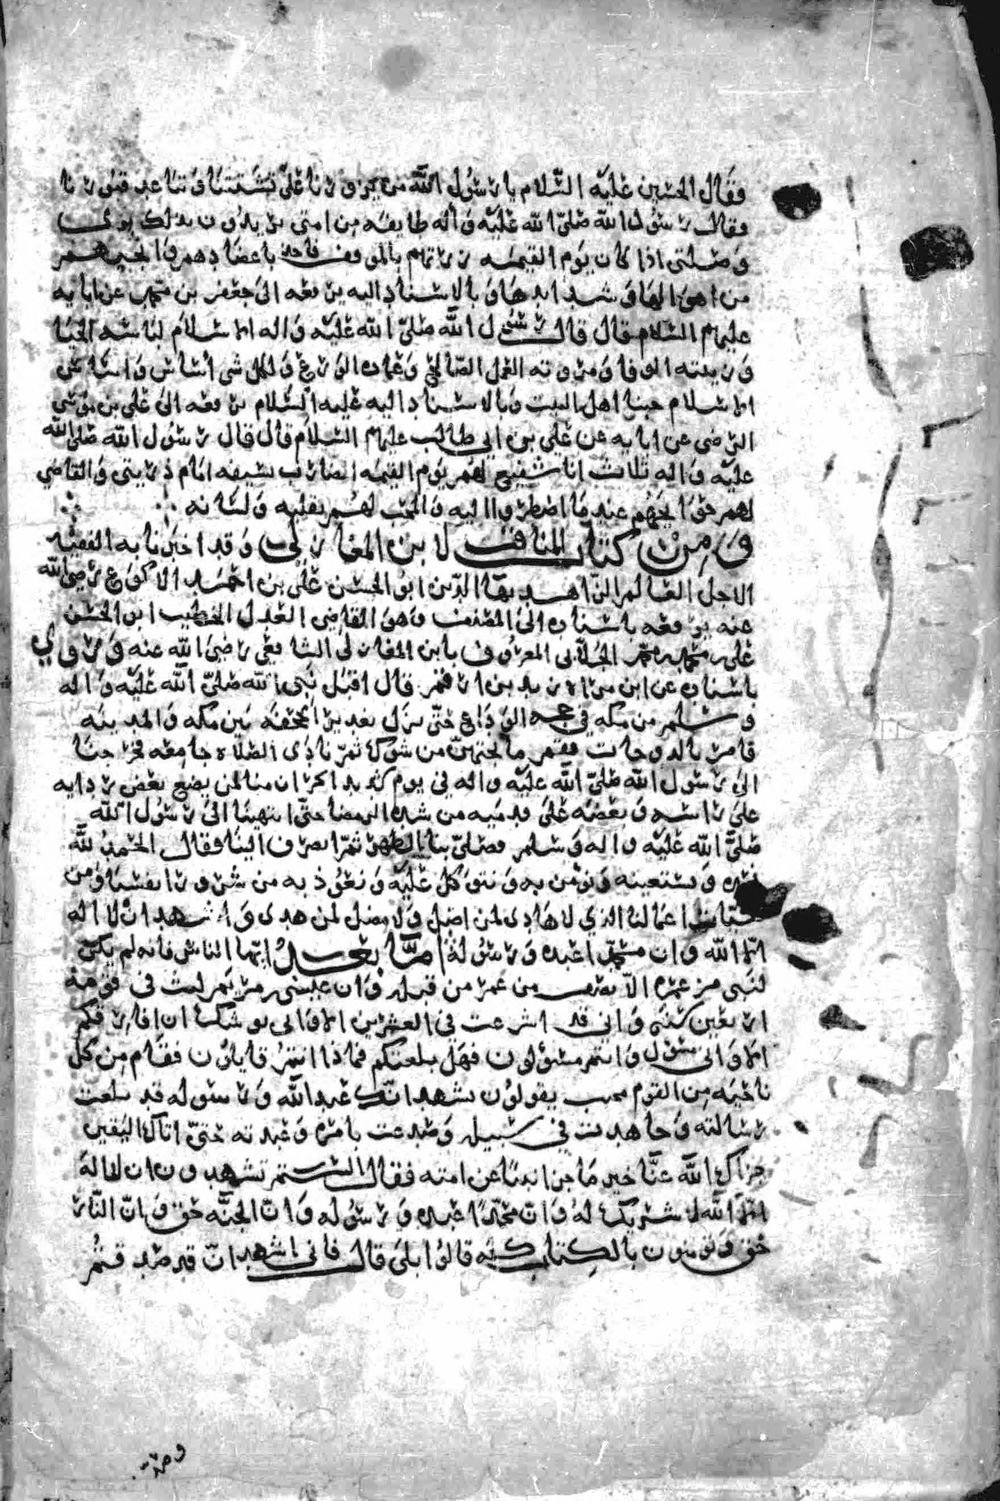 فقال الحسين عليه السلام يا رسول الله من يزورنا على تشتتنا وتباعد قبورنا
فقال رسول الله صلى الله عليه وآله طايفه من امتي يريدون بذلك بري
وصلتي اذا كان يوم القيمه زرتهم بالموقف فاخذ باعضادهم فانجيهم
من اهوالها وشدايدها وبالاسناد اليه يرفعه الى جعفر بن محمد عن ابايه
عليهم السلام قال قال رسول الله صلى الله عليه واله الاسلام لباسه الحيا
وزينته الوفا ومروته العمل الصالح وعماده الورع ولكل شي أساس واساس
الاسلام حبنا اهل البيت وبالاسناد اليه عليه السلام يرفعه الى علي بن موسى
الرضى عن ابايه عن علي بن ابي طالب عليهم السلام قال قال رسول الله صلى الله
عليه واله ثلاث انا شفيع لهم يوم القيمه الضارب بسيفه امام ذريتي والقاضي
لهم حوايجهم عند ما اضطروا اليه والمحب لهم بقلبه ولسانه
ومن كتاب المناقب لابن المغازلي وقد اخبرنا به الفقيه
الاجل العالم الزاهد بها الدين ابو الحسن علي بن احمد الاكوع رضي الله
عنه يرفعه باسناده الى المصنف وهو القاضي العدل الخطيب ابو الحسن
علي بن محمد بن محمد الجلابي المعروف بابن المغازلي الشافعي رضي الله عنه وروي
باسناده عن ابن مراه زيد بن ارقم قال اقبل نبي الله صلى الله عليه واله
وسلم من مكه في حجه الوداع حتى نزل بغدير الجحفه بين مكه والمدينه
فامر بالدوحات فقم ما تحتهن من شوك ثم نادى الصلاه جامعه فخرجنا
الى رسول الله صلى الله عليه واله في يوم شديد الحر ان منا لمن يضع بعض ردايه
على راسه وبعضه على قدميه من شده الرمضا حتى انتهينا الى رسول الله
صلى الله عليه واله وسلم فصلى بنا الظهر ثم انصرف الينا فقال الحمد لله
نحمده ونستعينه ونؤمن به ونتوكل عليه ونعوذ به من شرور انفسنا ومن
سيئات اعمالنا الذي لا هادي لمن اضل ولا مضل لمن هدى واشهد ان لا اله
الا الله وان محمدا عبده ورسوله اما بعد ايها الناس فانه لم يكن
لنبي من عمره الا نصف من عمر من قبله وان عيسى بن مريم لبث في قومه
اربعين سنه واني قد اشرعت في العشرين الا واني يوشك ان افارقكم
الا واني مسؤل وانتم مسؤلون فهل بلغتكم فماذا انتم قايلون فقام من كل
ناحيه من القوم مجيب يقولون نشهد انك عبد الله ورسوله قد بلغت
رسالته وجاهدت في سبيله وصدعت بامره وعبدته حتى اتاك اليقين
جزاك الله عنا خير ما جزا نبيا عن امته فقال الستم تشهدون ان لا اله
الا الله لا شريك له وان محمدا عبده ورسوله وان الجنه حق وان النار
حق وتؤمنون بالكتاب كله قالوا بلى قال فاني اشهد ان قد صدقتم